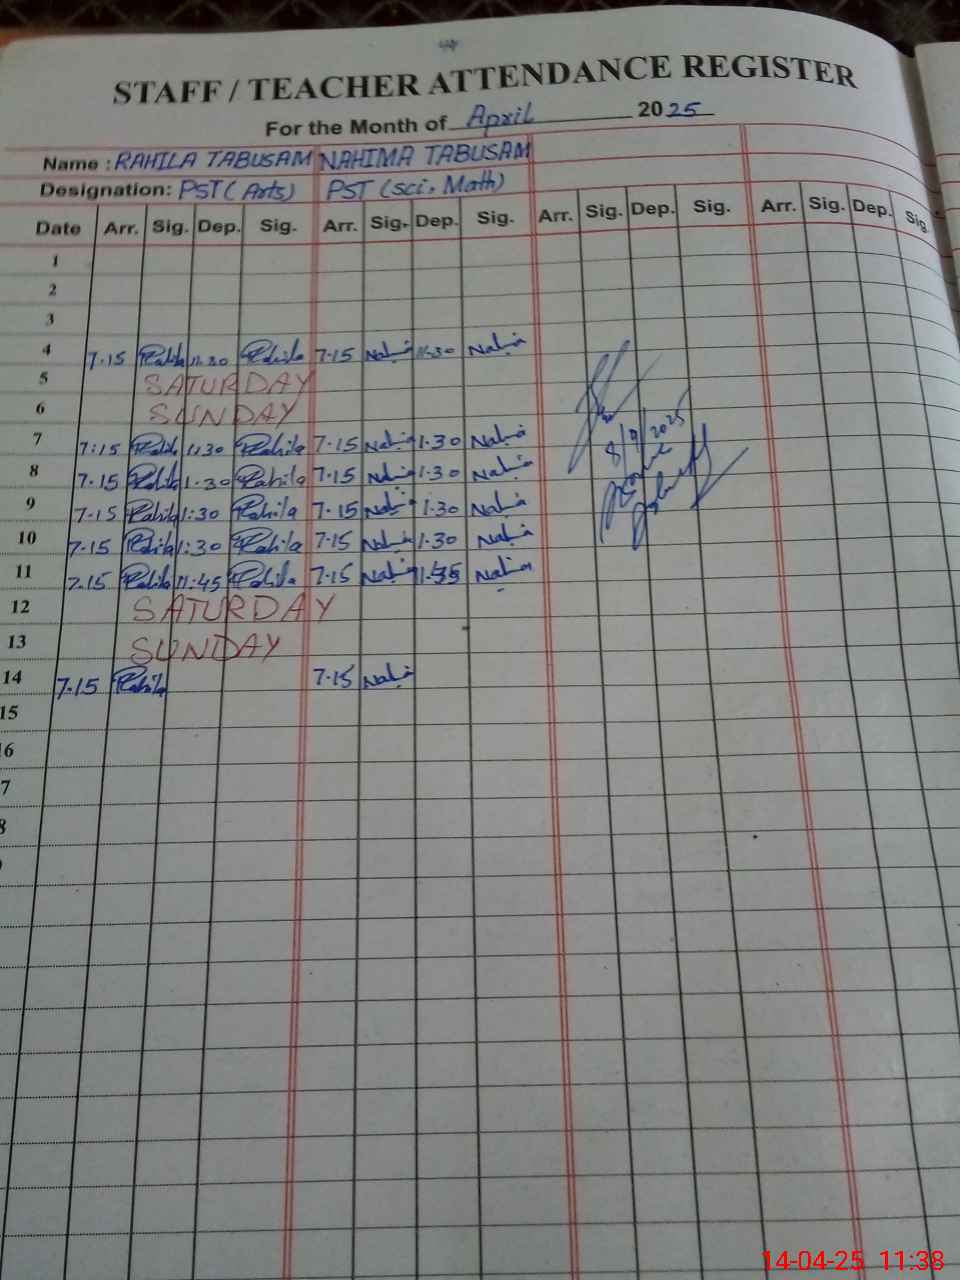 STAFF / TEACHER ATTENDANCE REGISTER
For the Month of April 2025
Name : RAHILA TABUSAM NAHIMA TABUSAM
Designation: PST (Arts) PST (sci, Math)
Date Arr. Sig. Dep. Sig. Arr. Sig. Dep. Sig. Arr. Sig. Dep. Sig. Arr. Sig. Dep. Sig.
1
2
3
4 7.15 Rahila 11.30 Rahila 7.15 11.30
5 SATURDAY
6 SUNDAY
7 7:15 Rahila 1:30 Rahila 7.15 1.30
8 7.15 Rahila 1.30 Rahila 7.15 1.30
9 7.15 Rahila 1:30 Rahila 7.15 1.30
10 7.15 Rahila 1:30 Rahila 7.15 1.30
11 7.15 Rahila 11.45 Rahila 7.15
12 SATURDAY
13 SUNDAY
14 7.15 Rahila 7.15
15
16
7
8
14-04-25 11:38